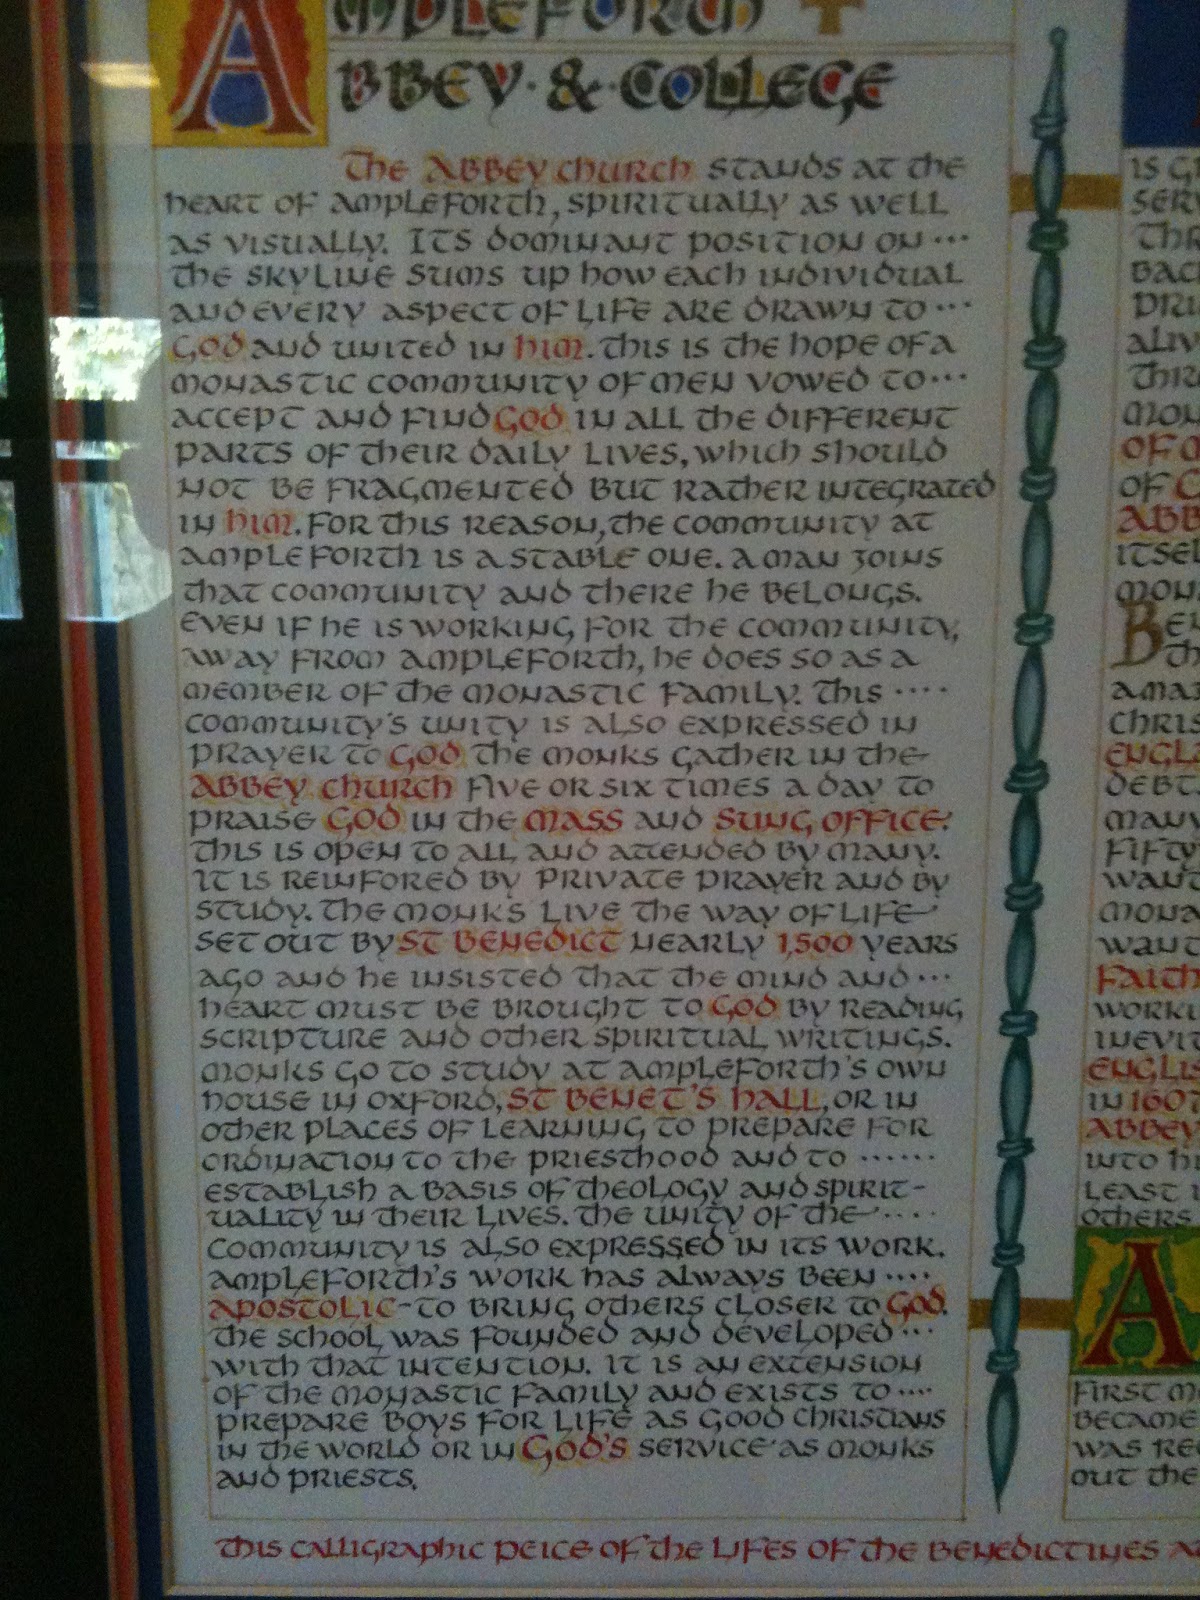 AMPLEFORTH
ABBEY · & · COLLEGE
The ABBEY church STANDS AT the
heart of Ampleforth, spiritually as well
as visually. Its dominant position on ...
the skyline sums up how each individual
and every aspect of life are drawn to ...
God and united in him. This is the hope of a
monastic community of men vowed to ...
accept and find God in all the different
parts of their daily lives, which should
not be fragmented but rather integrated
in him. For this reason, the community at
Ampleforth is a stable one. A man joins
that community and there he belongs.
Even if he is working for the community,
away from Ampleforth, he does so as a
member of the monastic family. This ....
community's unity is also expressed in
prayer to God the monks gather in the
Abbey church five or six times a day to
praise God in the Mass and Sung Office.
This is open to all and attended by many.
It is reinfored by private prayer and by
study. The monks live the way of life
set out by St Benedict nearly 1,500 years
ago and he insisted that the mind and ...
heart must be brought to God by reading
scripture and other spiritual writings.
Monks go to study at Ampleforth's own
house in Oxford, St Benet's Hall, or in
other places of learning to prepare for
ordination to the priesthood and to ......
establish a basis of theology and spirit-
uality in their lives. The unity of the ....
community is also expressed in its work.
Ampleforth's work has always been ....
apostolic - to bring others closer to God.
The school was founded and developed ...
with that intention. It is an extension
of the monastic family and exists to ....
prepare boys for life as good christians
in the world or in God's service as monks
and priests.
This calligraphic peice of the lifes of the Benedictines
IS
OF
ITSEL
B
th
AMAZ
CHRIS
ENGLA
DEBT
MANY
FIFTY
WANT
MONA
WANT
FAITH
WORKI
INEVIT
ENGLIS
IN 1607
ABBEY
INTO
LEAST
OTHERS
A
FIRST M
BECAME
WAS RE
OUT THE